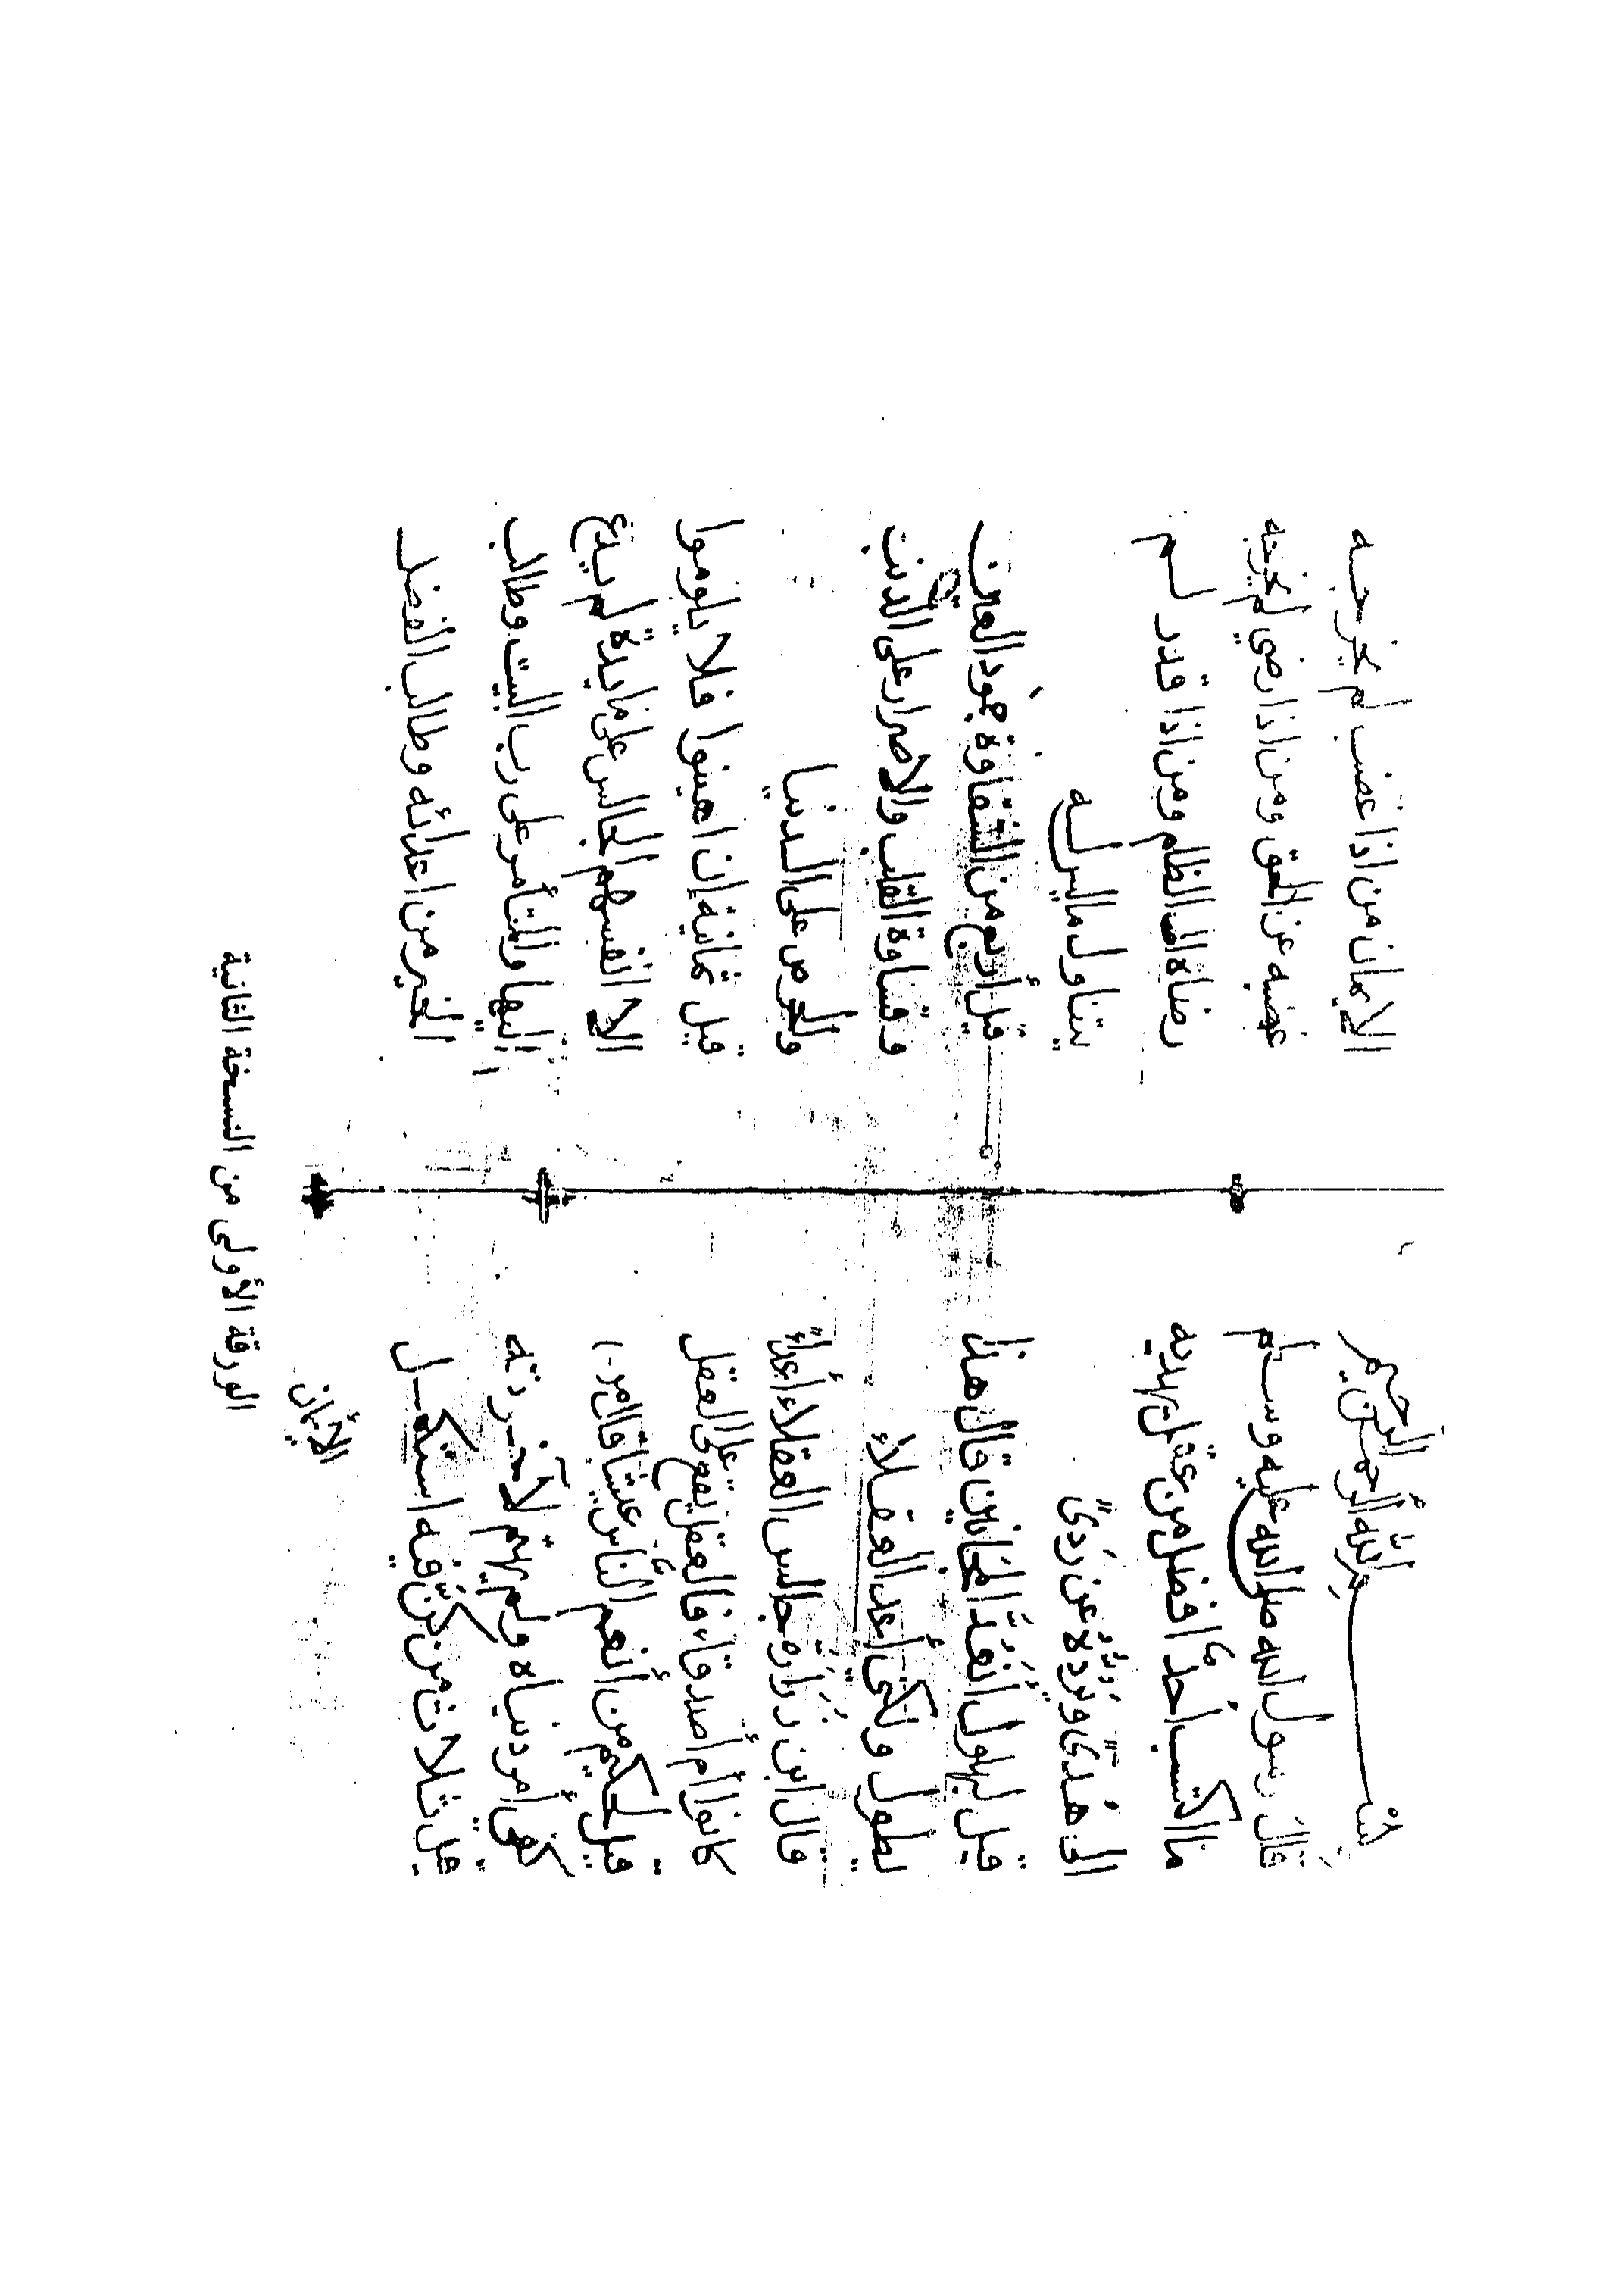 بسم الله الرحمن الرحيم
قال رسول الله صلى الله عليه وسلم
ما اكتسب أحد أفضل من عقل يهديه
الى هدى ويرده عن ردى
قيل لبهلول أتعد المجانين قال هذا
يطول ولكني أعد العقلاء
قال ابن زرارة جالس العقلاء أعداءً
كانوا أم أصدقاء فالعقل يقع على العقل
قيل لحكيم من أنعم الناس عيشا قال من
كفي أمر دنياه ولم يهتم لآخرته
قيل ثلاث من كن فيه استكمل
الإيمان
الايمان من اذا غضب لم يخرجه
غضبه عن الحق ومن اذا رضي لم يخرجه
رضاه الى الظلم ومن اذا قدر لم
يتناول ما ليس له
قيل أربع من الشقاوة جمود العين
وقساوة القلب والاصرار على الذنب
والحرص على الدنيا
قيل ثمانية إن اهينوا فلا يلوموا
الا انفسهم الجالس على مايدة لم يدع
إليها والمتأمر على رب البيت وطالب
الخير من اعدائه وطالب الفضل
الورقة الأولى من النسخة الثانية